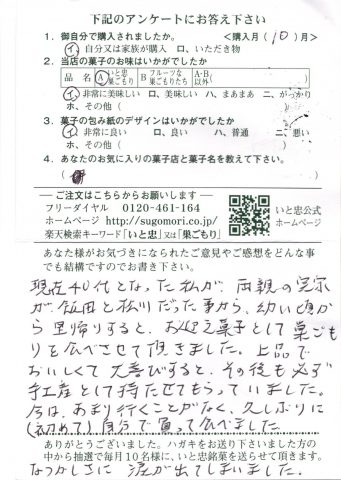 下記のアンケートにお答え下さい
1．御自分で購入されましたか。 ＜購入月（10）月＞
イ、自分又は家族が購入 ロ、いただき物
2．当店の菓子のお味はいかがでしたか
品 名 A いと忠巣ごもり B フルーツな巣ごもりたち A・B以外（ ）
イ、非常に美味しい ロ、美味しい ハ、まあまあ ニ、がっかり
ホ、その他（ ）
3．菓子の包み紙のデザインはいかがでしたか
イ、非常に良い ロ、良い ハ、普通 ニ、悪い
ホ、その他（ ）
4．あなたのお気に入りの菓子店と菓子名を教えて下さい。
（ ）
ご注文はこちらからお願いします
フリーダイヤル 0120-461-164
ホームページ http://sugomori.co.jp/
楽天検索キーワード「いと忠」又は「巣ごもり」
いと忠公式
ホームページ
あなた様がお気づきになられたご意見やご感想をどんな事
でも結構ですのでお書き下さい。
現在40代となった私が、両親の実家
が、飯田と松川だった事から、幼い頃か
ら里帰りすると、お迎え菓子として巣ごも
りを食べさせて頂きました。上品で
おいしくて大喜びすると、その後も必ず
手土産として持たせてもらっていました。
今は、あまり行くことがなく、久しぶりに
（初めて）自分で買って食べました。
ありがとうございました。ハガキをお送り下さいました方の
中から抽選で毎月10名様に、いと忠銘菓を送らせて頂きます。
なつかしさに涙が出てしまいました。